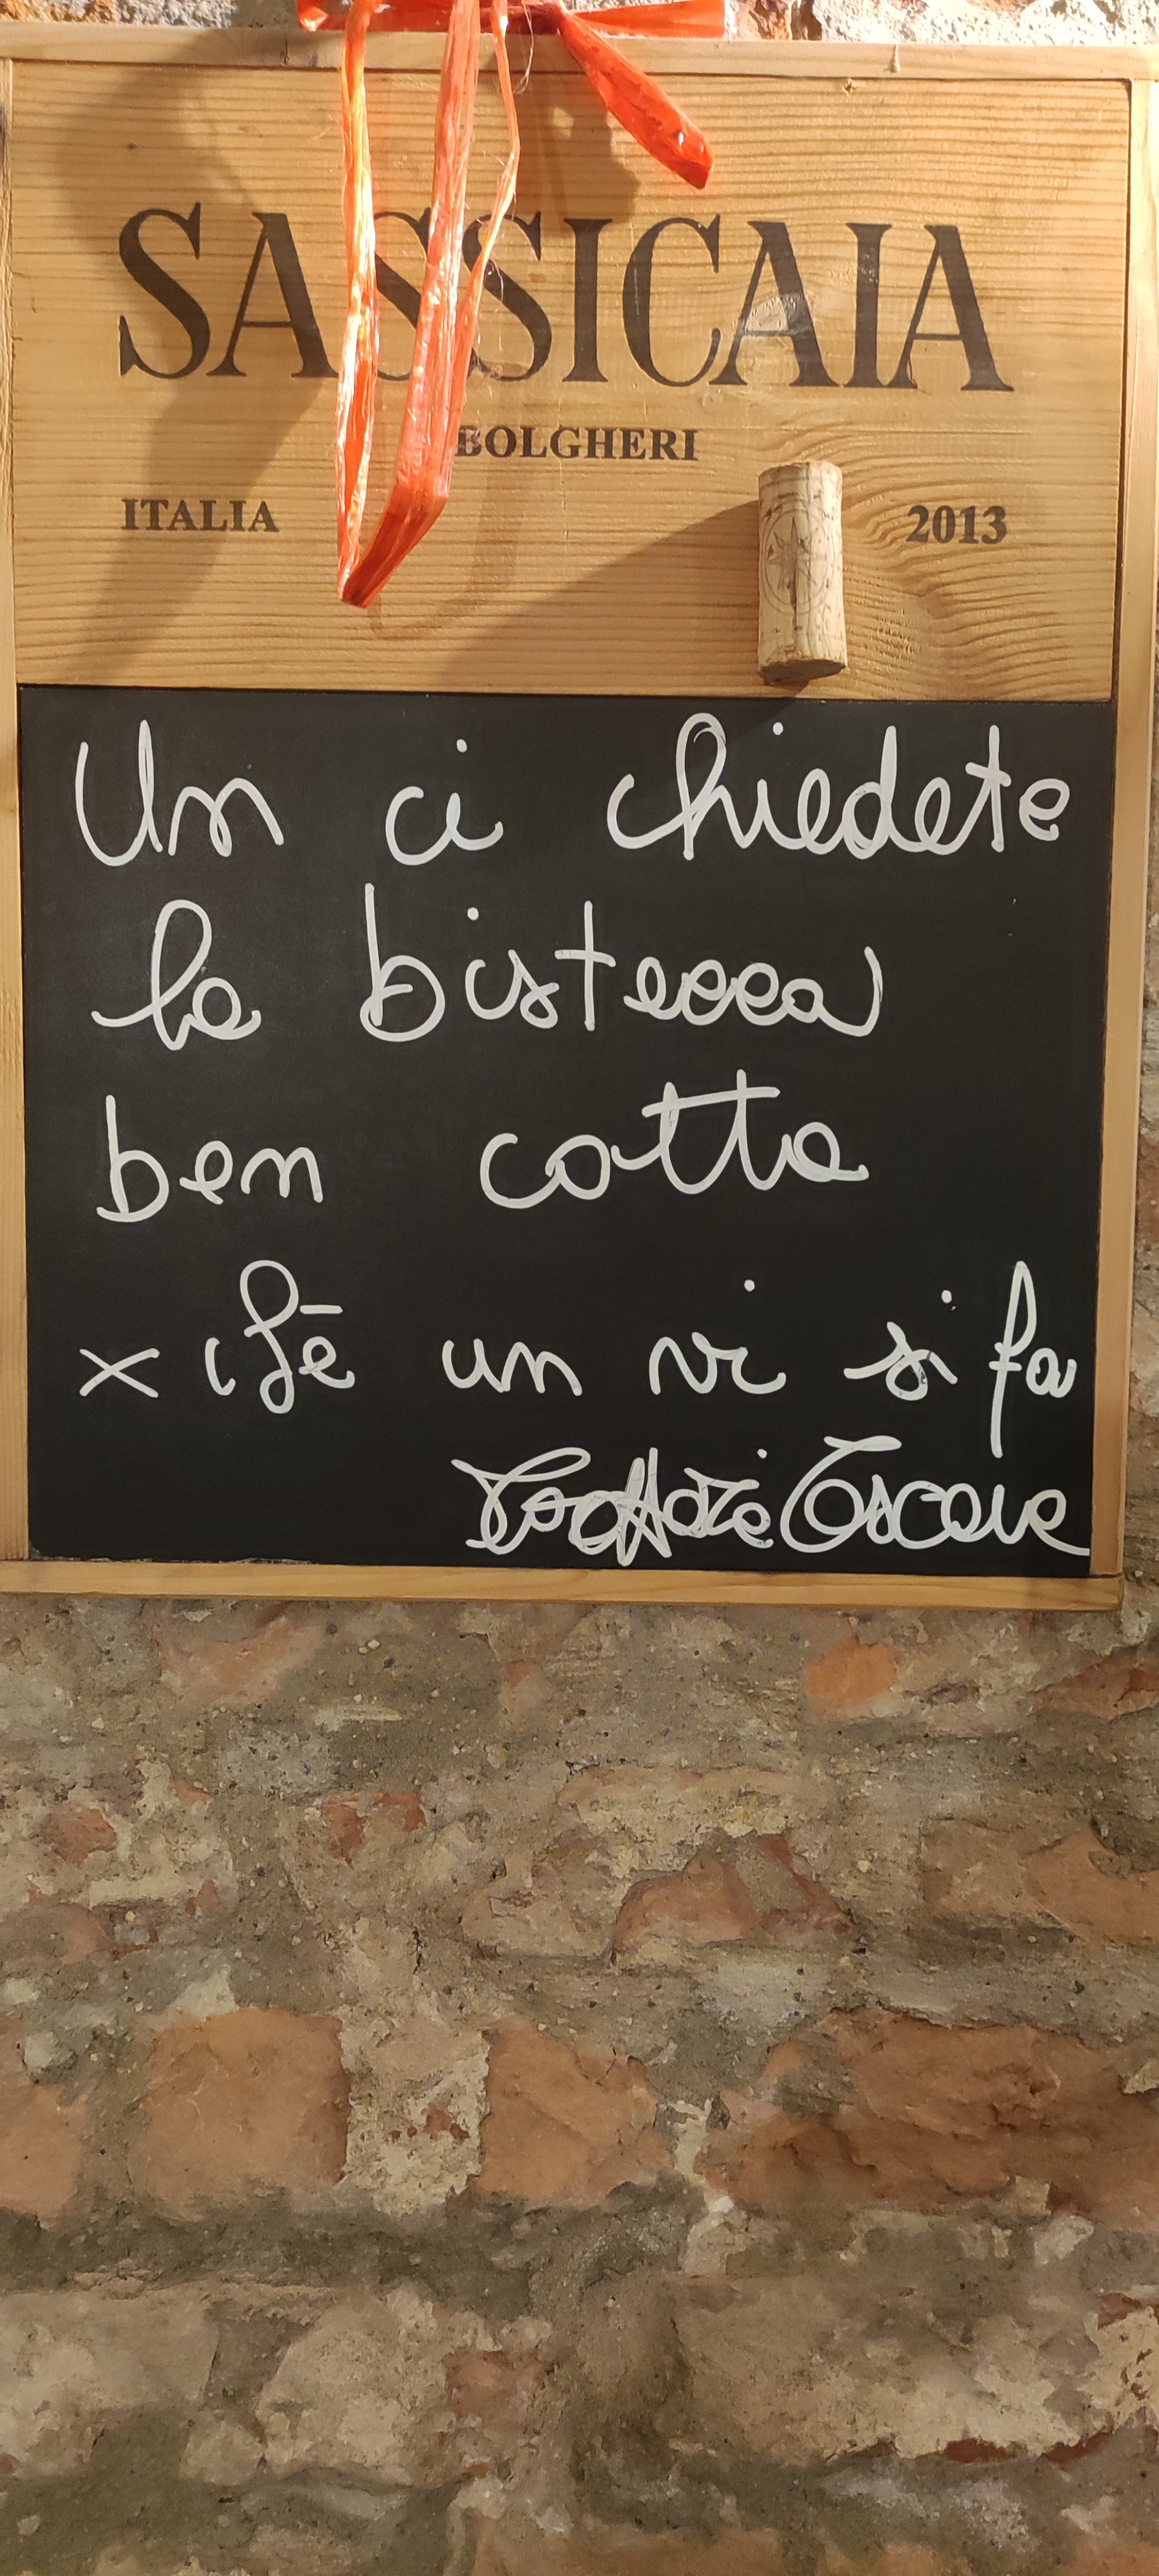 SASSICAIA
BOLGHERI
ITALIA 2013
Un ci chiedete
la bistecca
ben cotta
x chè un vi si fa
Trattoria Toscana